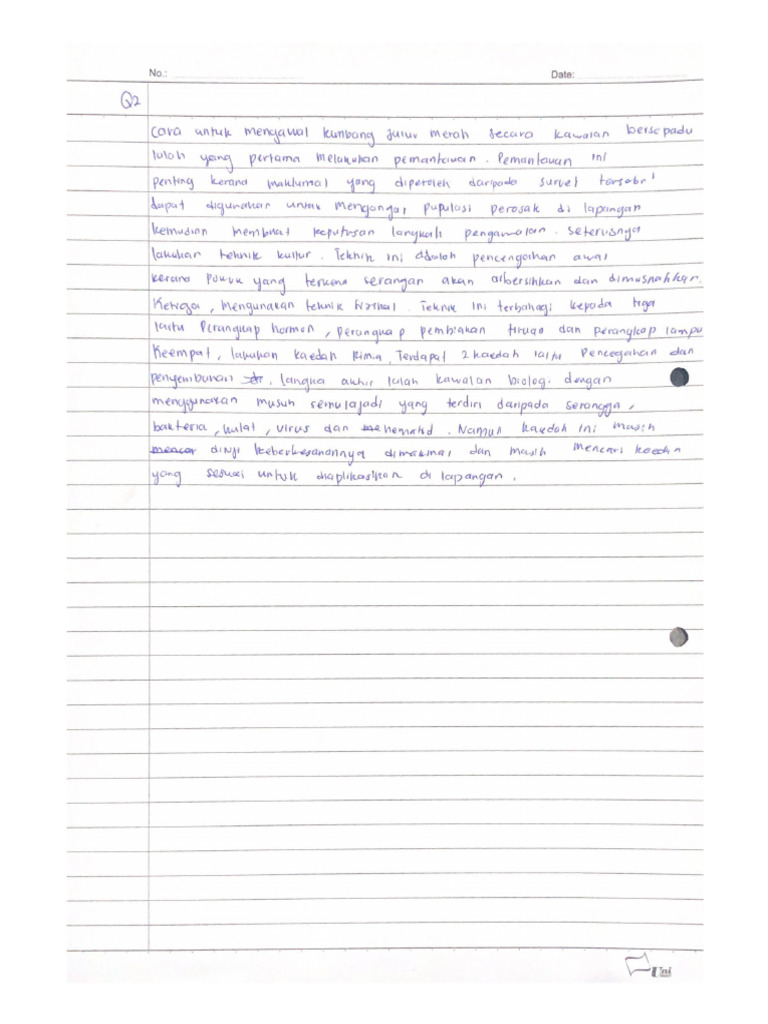 No.:
Date:
Q2
Cara untuk mengawal kumbang jalur merah secara kawalan bersepadu
ialah yang pertama melakukan pemantauan. Pemantauan ini
penting kerana maklumat yang diperoleh daripada survei tersebut
dapat digunakan untuk mengangar pupulasi perosak di lapangan
kemudian membuat keputusan langkah pengawalan. Seterusnya
lakukan teknik kultur. Teknik ini adalah pencengahan awal
kerana pokok yang terkena serangan akan dibersihkan dan dimusnahkan.
Ketiga, mengunakan teknik fizikal. Teknik ini terbahagi kepada tiga
iaitu Perangkap hormon, perangkap pembiakan tiruan dan perangkap lampu
Keempat, lakukan kaedah kimia. Terdapat 2 kaedah iaitu Pencegahan dan
penyemburan. Langka akhir ialah kawalan biologi dengan
menggunakan musuh semulajadi yang terdiri daripada serangga,
bakteria, kulat, virus dan nematod. Namun kaedah ini masih
diuji keberkesanannya dimakmal dan masih mencari kaedah
yang sesuai untuk diaplikasikan di lapangan.
Uni